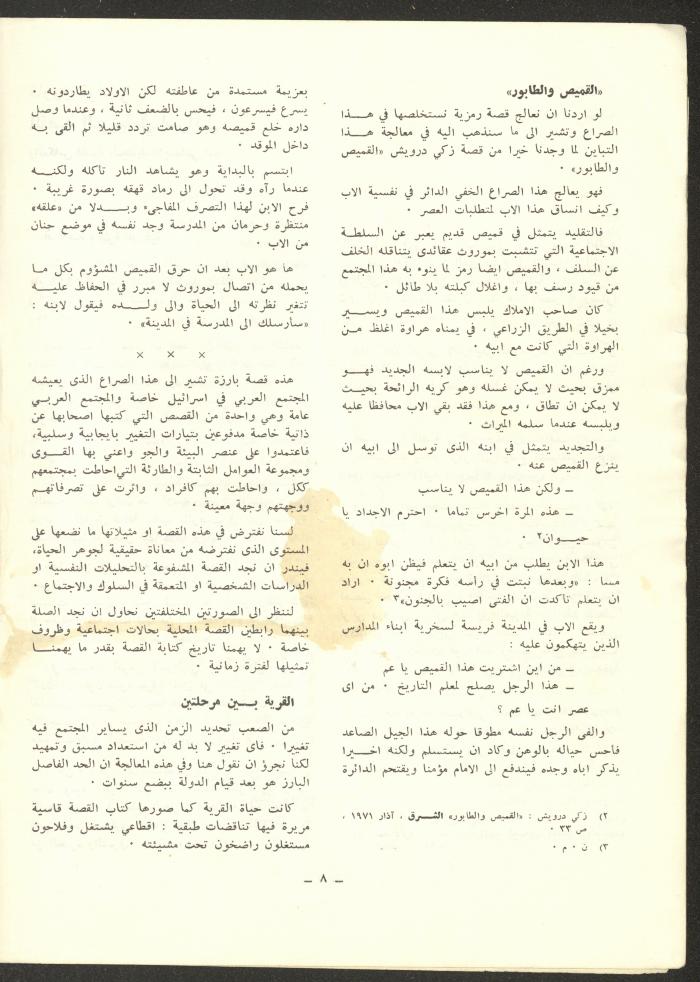 «القميص والطابور»
لو اردنا ان نعالج قصة رمزية نستخلصها في هـــذا
الصراع وتشير الى ما سنذهب اليه في معالجة هـــذا
التباين لما وجدنا خيرا من قصة زكي درويش «القميص
والطابور» ٠
فهو يعالج هذا الصراع الخفي الدائر في نفسية الاب
وكيف انساق هذا الاب لمتطلبات العصر ٠
فالتقليد يتمثل في قميص قديم يعبر عن السلطــة
الاجتماعية التي تتشبت بموروث عقائدى يتناقله الخلف
عن السلف ، والقميص ايضا رمز لما ينوء به هذا المجتمع
من قيود رسف بها ، واغلال كبلته بلا طائل ٠
كان صاحب الاملاك يلبس هذا القميص ويســـير
بخيلا في الطريق الزراعي ، في يمناه هراوة اغلظ مـن
الهراوة التي كانت مع ابيه ٠
ورغم ان القميص لا يناسب لابسه الجديد فهـــو
ممزق بحيث لا يمكن غسله وهو كريه الرائحة بحيــث
لا يمكن ان تطاق ، ومع هذا فقد بقي الاب محافظا عليه
ويلبسه عندما سلمه الميراث ٠
والتجديد يتمثل في ابنه الذى توسل الى ابيه ان
ينزع القميص عنه ٠
ــ ولكن هذا القميص لا يناسب
ــ هذه المرة اخرس تماما ٠ احترم الاجداد يا
حيـــوان٢ ٠
هذا الابن يطلب من ابيه ان يتعلم فيظن ابوه ان به
مسا : «وبعدها نبتت في رأسه فكرة مجنونة ٠ اراد
ان يتعلم تأكدت ان الفتى اصيب بالجنون»٣ ٠
ويقع الاب في المدينة فريسة لسخرية ابناء المدارس
الذين يتهكمون عليه :
ــ من اين اشتريت هذا القميص يا عم
ــ هذا الرجل يصلح لمعلم التاريخ ٠ من اى
عصر انت يا عم ؟
والفى الرجل نفسه مطوقا حوله هذا الجيل الصاعد
فاحس حياله بالوهن وكاد ان يستسلم ولكنه اخـــيرا
يذكر اباه وجده فيندفع الى الامام مؤمنا ويقتحم الدائرة
٢) زكي درويش : «القميص والطابور» الشرق ، آذار ١٩٧١ ،
ص ٣٣ ٠
٣) ن ٠ م ٠
بعزيمة مستمدة من عاطفته لكن الاولاد يطاردونه ٠
يسرع فيسرعون ، فيحس بالضعف ثانية ، وعندما وصل
داره خلع قميصه وهو صامت تردد قليلا ثم القى بـه
داخل الموقد ٠
ابتسم بالبداية وهو يشاهد النار تاكله ولكنـــه
عندما رآه وقد تحول الى رماد قهقه بصورة غريبة ٠
فرح الابن لهذا التصرف المفاجىء وبـــدلا من «علقه»
منتظرة وحرمان من المدرسة وجد نفسه في موضع حنان
من الاب ٠
ها هو الاب بعد ان حرق القميص المشؤوم بكل مـا
يحمله من اتصال بموروث لا مبرر في الحفاظ عليـــه
تتغير نظرته الى الحياة والى ولـــده فيقول لابنه :
«سأرسلك الى المدرسة في المدينة» ٠
× × ×
هذه قصة بارزة تشير الى هذا الصراع الذى يعيشه
المجتمع العربي في اسرائيل خاصة والمجتمع العربـي
عامة وهي واحدة من القصص التي كتبها اصحابها عن
ذاتية خاصة مدفوعين بتيارات التغيير بايجابية وسلبية،
فاعتمدوا على عنصر البيئة والجو واعني بها القـــوى
ومجموعة العوامل الثابتة والطارئة التي احاطت بمجتمعهم
ككل ، واحاطت بهم كأفراد ، واثرت على تصرفاتهــم
ووجهتهم وجهة معينة ٠
لسنا نفترض في هذه القصة او مثيلاتها ما نضعها على
المستوى الذى نفترضه من معاناة حقيقية لجوهر الحياة،
فيندر ان نجد القصة المشفوعة بالتحليلات النفسية او
الدراسات الشخصية او المتعمقة في السلوك والاجتماع ٠
لننظر الى الصورتين المختلفتين نحاول ان نجد الصلة
بينهما رابطين القصة المحلية بحالات اجتماعية وظروف
خاصة ٠ لا يهمنا تاريخ كتابة القصة بقدر ما يهمنـــا
تمثيلها لفترة زمانية ٠
القرية بـــين مرحلتين
من الصعب تحديد الزمن الذى يساير المجتمع فيه
تغييرا ٠ فأى تغيير لا بد له من استعداد مسبق وتمهيد
لكنا نجرؤ ان نقول هنا وفي هذه المعالجة ان الحد الفاصل
البارز هو بعد قيام الدولة ببضع سنوات ٠
كانت حياة القرية كما صورها كتاب القصة قاسية
مريرة فيها تناقضات طبقية : اقطاعي يشتغل وفلاحون
مستغلون راضخون تحت مشيئته ٠
ــ ٨ ــ